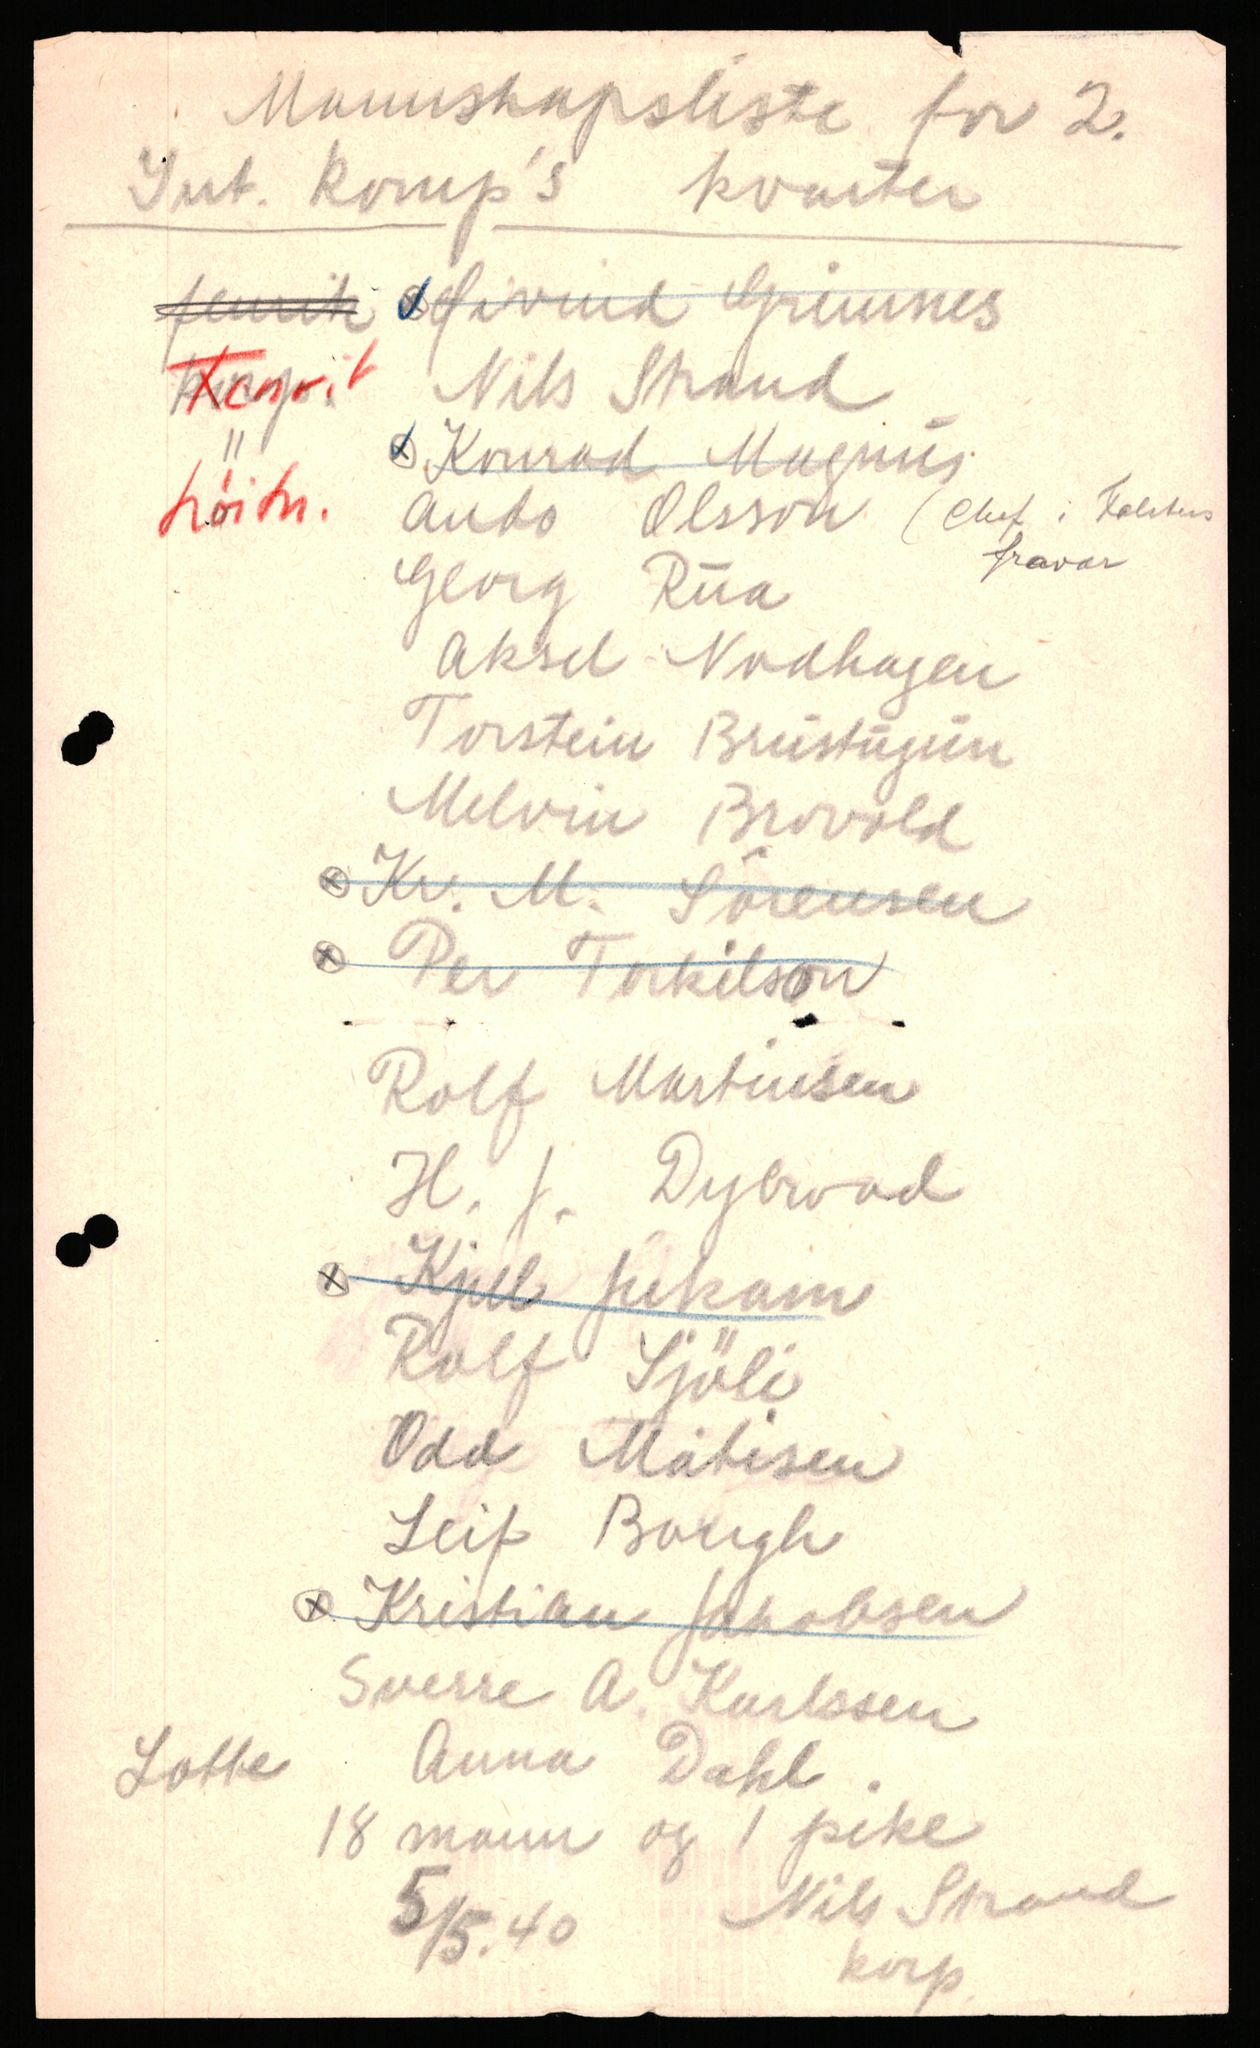 Mannskapsliste for 2.
Int. Komp's kvarter
fenrik Eivind Grimnes
korp. Fenrik Nils Strand
" Konrad Magnus
Ando Olsson (Chef i
fravær
Georg Rua
Aksel Nodhagen
Torstein Brustugun
Melvin Brovold
Kr. M. Sörensen
Per Torkilson
Rolf Martinsen
H. J. Dybwad
Kjell
Rolf Sjöli
Odd Matisen
Leif Borgh
Kristian Jakobsen
Sverre A. Karlssen
Lotte Anna Dahl.
18 mann og 1 pike
5/5.40 Nils Strand
korp.